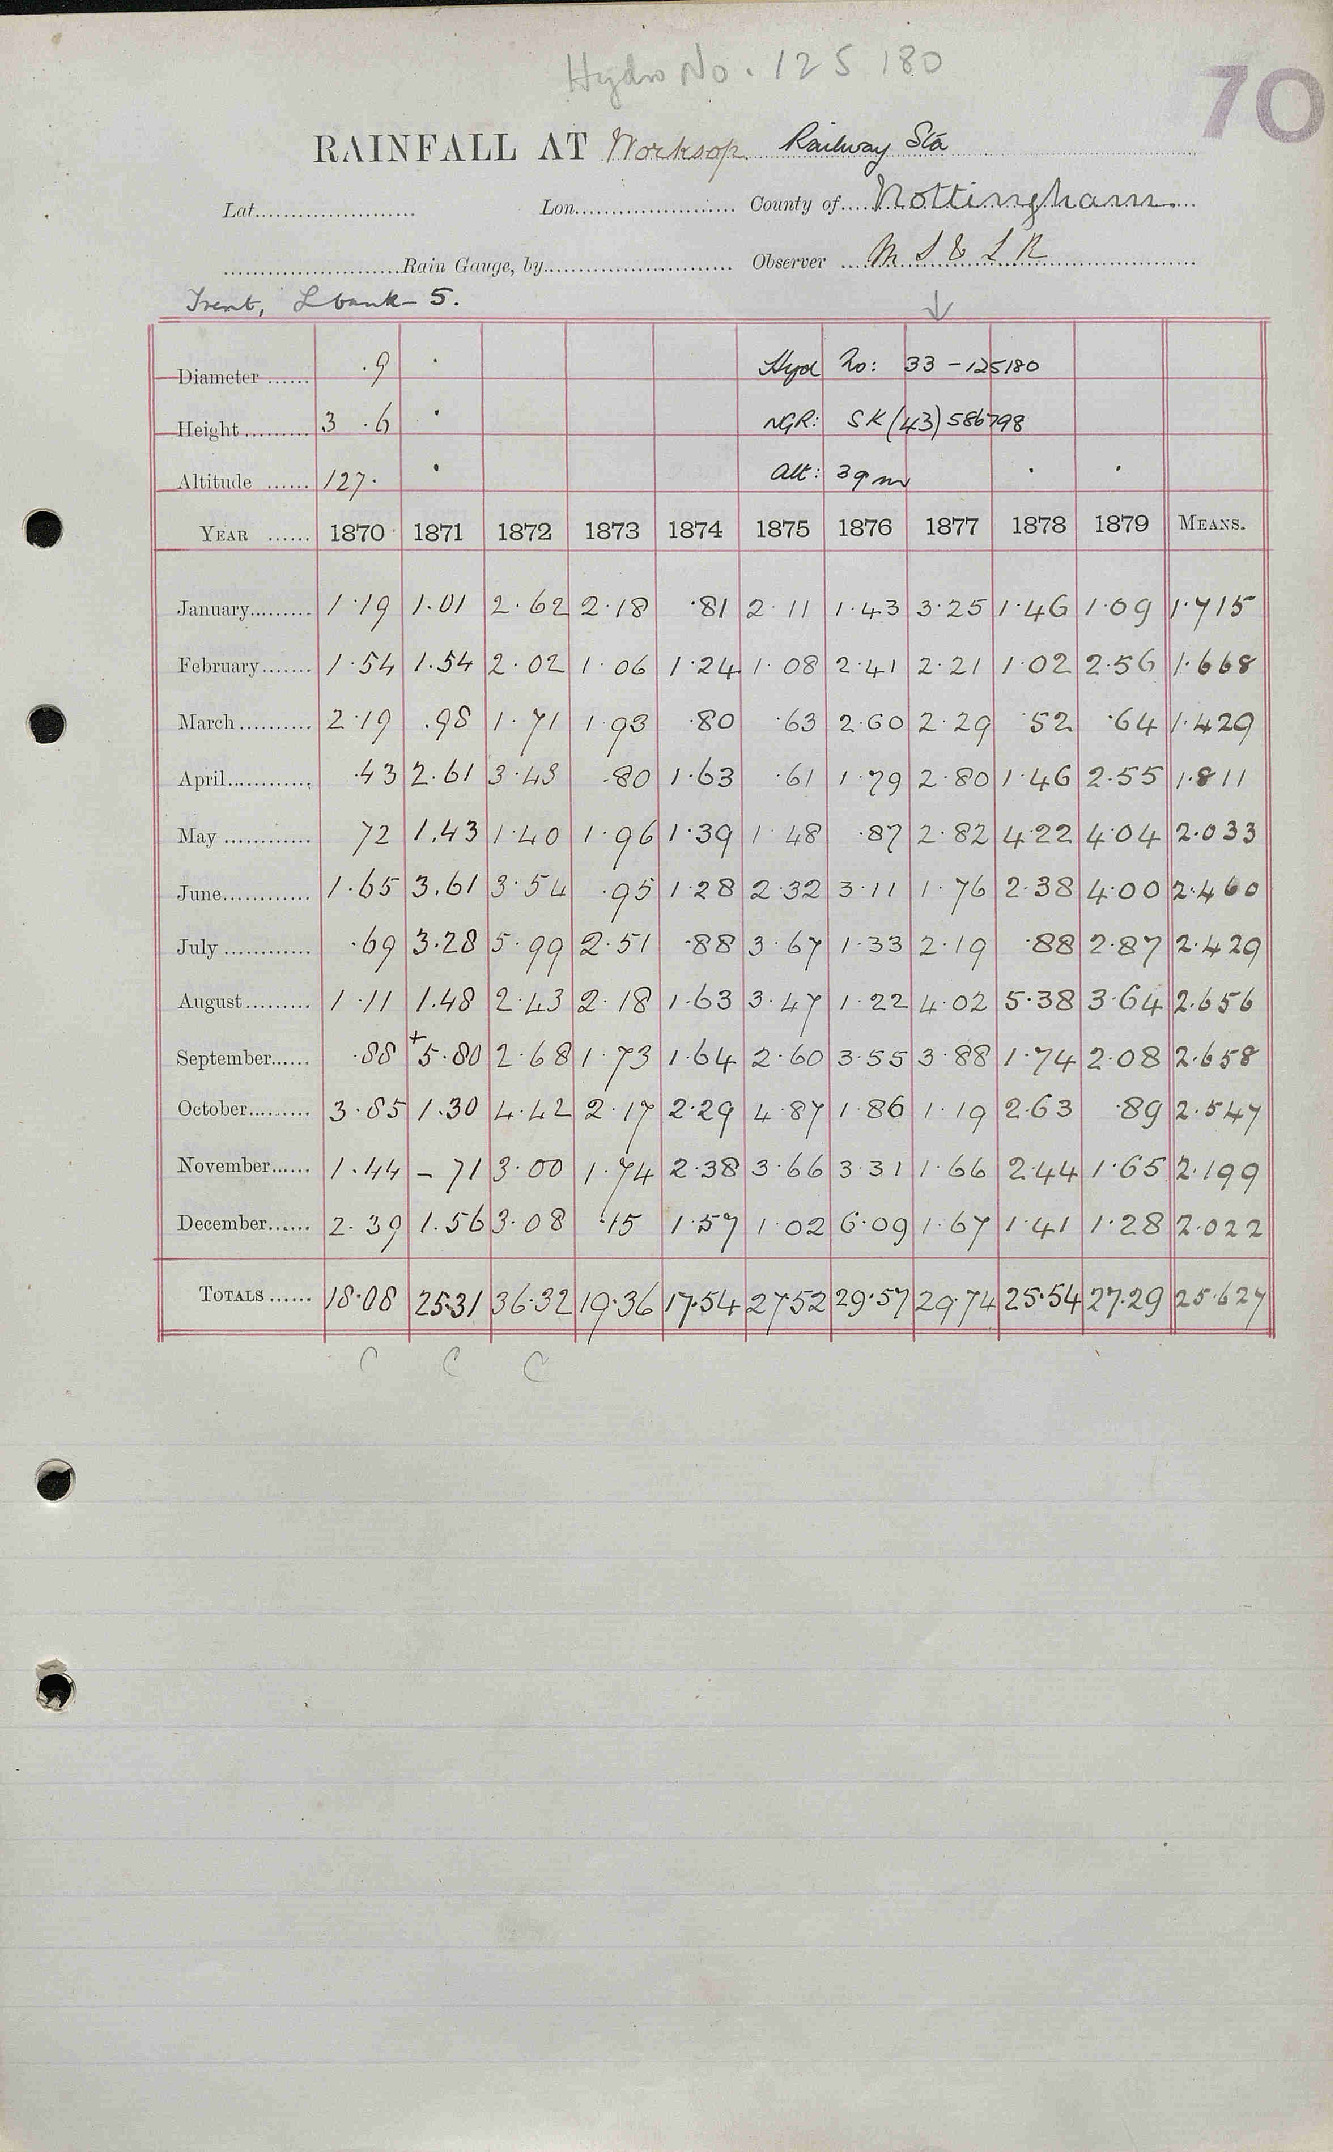 Hydro No. 125 180
70
RAINFALL AT Worksop Railway Sta
Lat. Lon. County of Nottingham
Rain Gauge, by Observer M S & L R
Trent, L bank - 5.
Diameter ...... ·9 · Hyd No: 33 - 125180
Height ......... 3 ·6 · NGR: SK (43) 586798
Altitude ...... 127· · Alt: 39m · ·
YEAR ...... 1870 1871 1872 1873 1874 1875 1876 1877 1878 1879 MEANS.
January......... 1·19 1.01 2·62 2·18 ·81 2·11 1·43 3·25 1·46 1·09 1·715
February....... 1·54 1.54 2·02 1·06 1·24 1·08 2·41 2·21 1·02 2·56 1·668
March .......... 2·19 .98 1·71 1·93 ·80 ·63 2·60 2·29 ·52 ·64 1·429
April............ ·43 2.61 3·43 ·80 1·63 ·61 1·79 2·80 1·46 2·55 1·811
May ............ 72 1.43 1·40 1·96 1·39 1·48 ·87 2·82 4·22 4·04 2·033
June............ 1·65 3.61 3·54 ·95 1·28 2·32 3·11 1·76 2·38 4·00 2·460
July ............ ·69 3.28 5·99 2·51 ·88 3·67 1·33 2·19 ·88 2·87 2·429
August ......... 1·11 1.48 2·43 2·18 1·63 3·47 1·22 4·02 5·38 3·64 2·656
September...... ·88 +5·80 2·68 1·73 1·64 2·60 3·55 3·88 1·74 2·08 2·658
October......... 3·85 1.30 4·42 2·17 2·29 4·87 1·86 1·19 2·63 ·89 2·547
November...... 1·44 - 71 3·00 1·74 2·38 3·66 3·31 1·66 2·44 1·65 2·199
December...... 2·39 1.56 3·08 ·15 1·57 1·02 6·09 1·67 1·41 1·28 2·022
TOTALS ...... 18·08 25·31 36·32 19·36 17·54 27·52 29·57 29·74 25·54 27·29 25·627
C C C